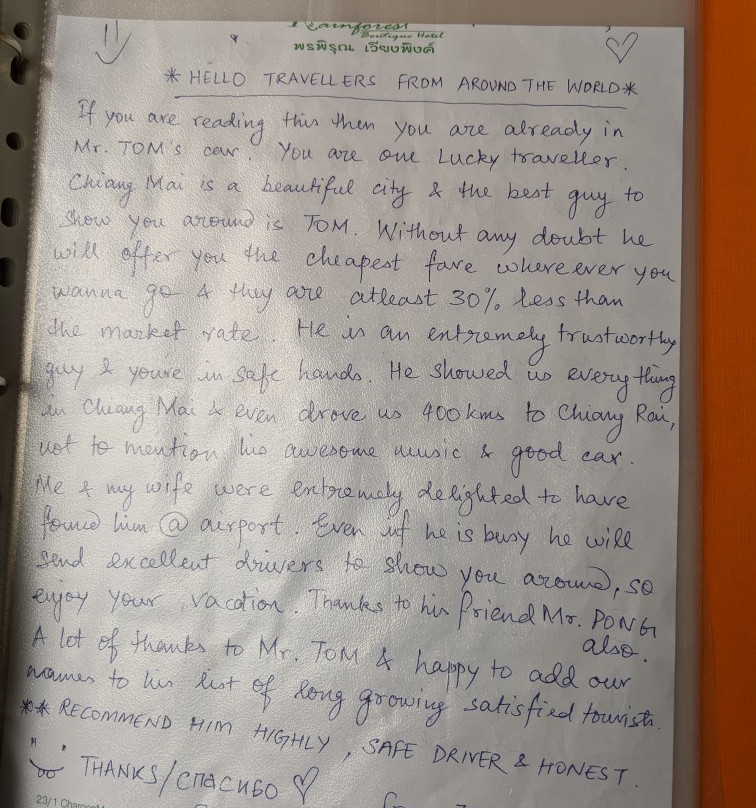 Rainforest
Boutique Hotel
พรพิรุณ เวียงพิงค์
* HELLO TRAVELLERS FROM AROUND THE WORLD *
If you are reading this then you are already in
Mr. TOM'S car. You are one Lucky traveller.
Chiang Mai is a beautiful city & the best guy to
show you around is TOM. Without any doubt he
will offer you the cheapest fare whereever you
wanna go & they are atleast 30% less than
the market rate. He is an extremely trustworthy
guy & youre in safe hands. He showed us everything
in Chiang Mai & even drove us 400 kms to Chiang Rai,
not to mention his awesome music & good car.
Me & my wife were extremely delighted to have
found him @ airport. Even if he is busy he will
send excellent drivers to show you around, so
enjoy your vacation. Thanks to his friend Mr. PONG
also.
A lot of thanks to Mr. TOM & happy to add our
names to his list of long growing satisfied tourists.
** RECOMMEND HIM HIGHLY, SAFE DRIVER & HONEST.
THANKS/СПАСИБО ♡
23/1